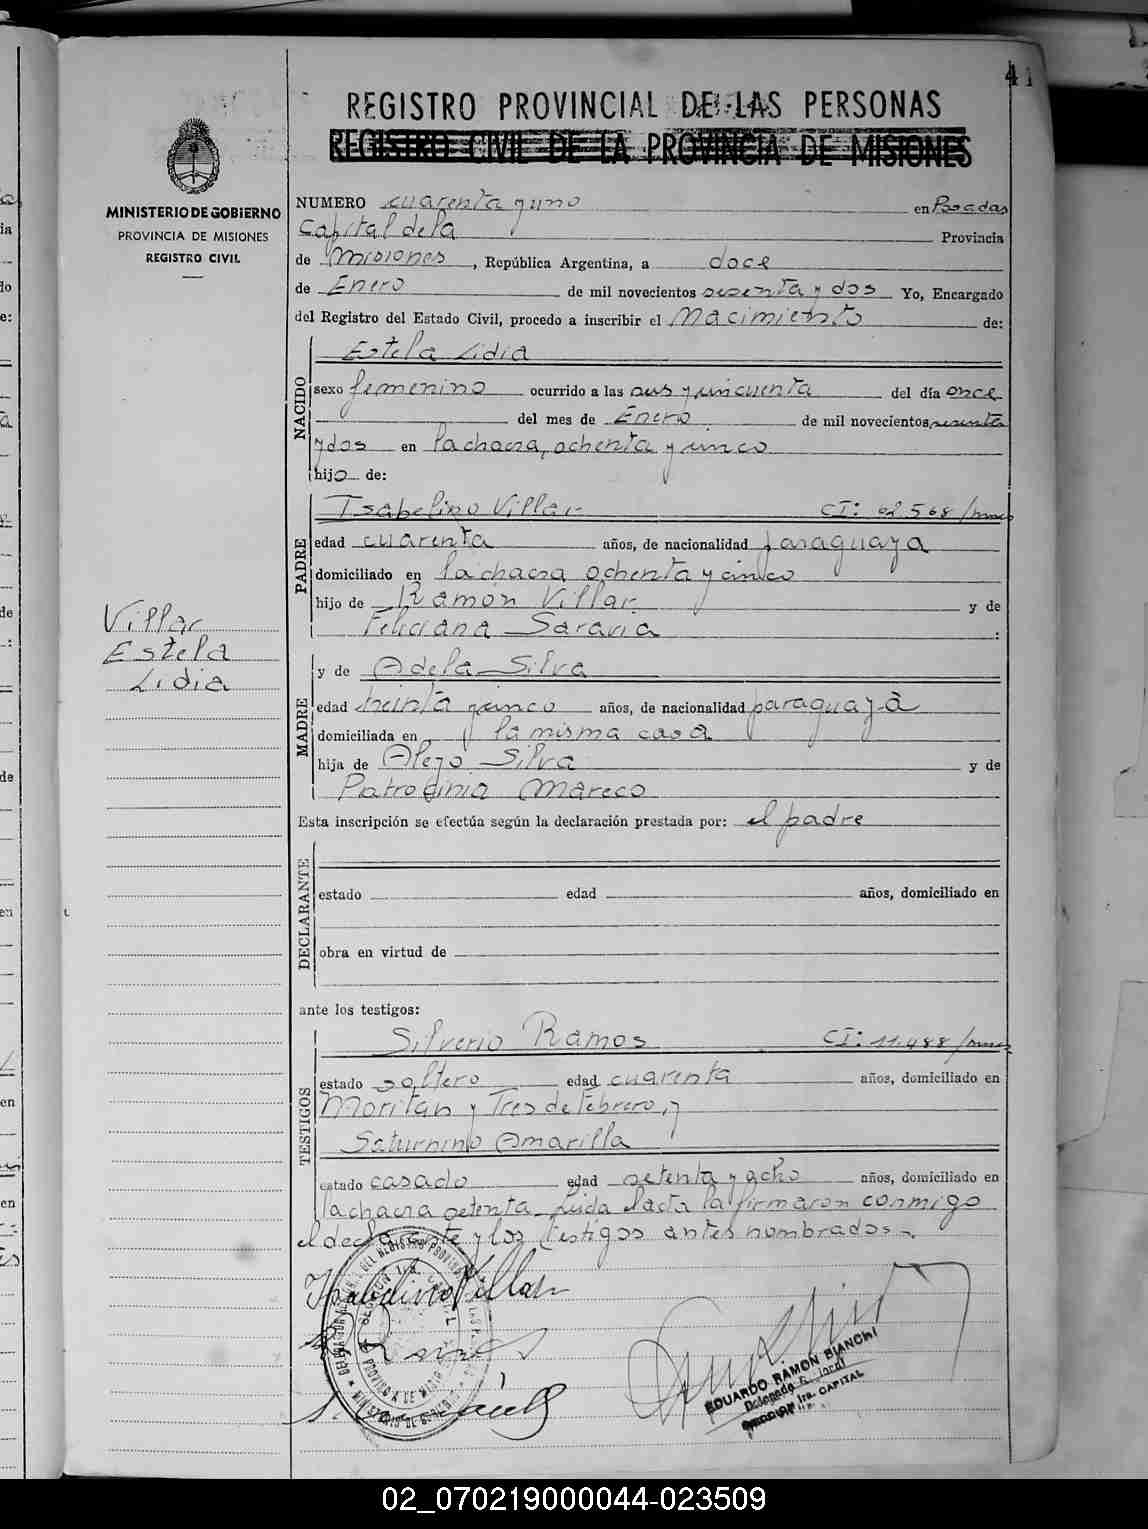 41
REGISTRO PROVINCIAL DE LAS PERSONAS
REGISTRO CIVIL DE LA PROVINCIA DE MISIONES
MINISTERIO DE GOBIERNO
PROVINCIA DE MISIONES
REGISTRO CIVIL
NUMERO cuarenta y uno en Posadas
Capital de la Provincia
de Misiones, República Argentina, a doce
de Enero de mil novecientos sesenta y dos Yo, Encargado
del Registro del Estado Civil, procedo a inscribir el Nacimiento de:
NACIDO
Estela Lidia
sexo femenino ocurrido a las seis y cincuenta del día once
del mes de Enero de mil novecientos sesenta
y dos en la chacra, ochenta y cinco
hijo de:
PADRE
Isabelino Villar CI: 62.568/mnes
edad cuarenta años, de nacionalidad paraguaya
domiciliado en la chacra ochenta y cinco
hijo de Ramón Villar y de
Feliciana Saravia :
Villar
Estela
Lidia
MADRE
y de Adela Silva
edad treinta y cinco años, de nacionalidad paraguaya
domiciliada en la misma casa
hija de Alejo Silva y de
Patrocinia Mareco
Esta inscripción se efectúa según la declaración prestada por: el padre
DECLARANTE
estado edad años, domiciliado en
obra en virtud de
ante los testigos:
TESTIGOS
Silverio Ramos CI: 11.488/mnes
estado soltero edad cuarenta años, domiciliado en
Moritan y Tres de Febrero, y
Saturnino Amarilla
estado casado edad setenta y ocho años, domiciliado en
la chacra setenta. Leida el acta la firmaron conmigo
el declarante y los testigos antes nombrados.
Isabelino Villar
S. Ramos
EDUARDO RAMON BIANCHI
SECCION 1ra. CAPITAL
02_070219000044-023509